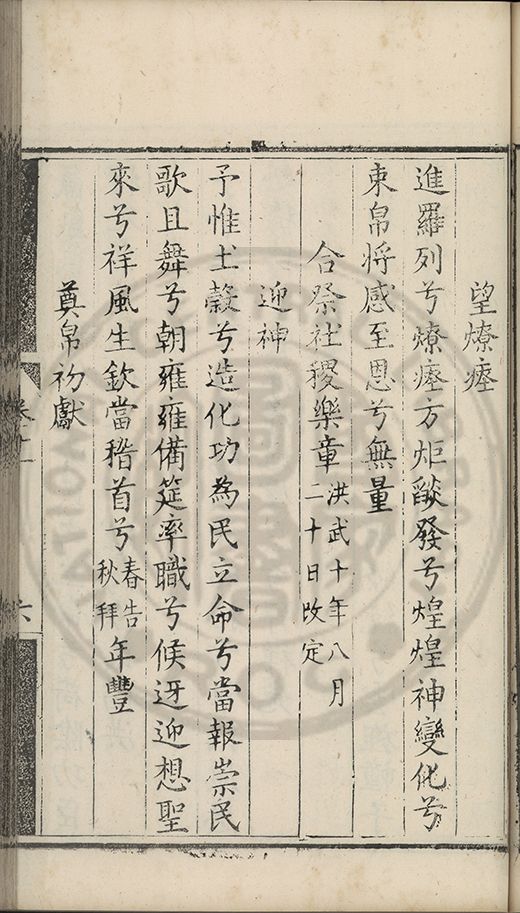 望燎瘞
進羅列兮燎瘞方炬燄發兮煌煌神變化兮
束帛將感至恩兮無量
合祭社稷樂章洪武十年八月二十日改定
迎神
予惟土穀兮造化功為民立命兮當報崇民
歌且舞兮朝雍雍備筵率職兮候迓迎想聖
來兮祥風生欽當稽首兮春告秋拜年豐
奠帛初獻
六